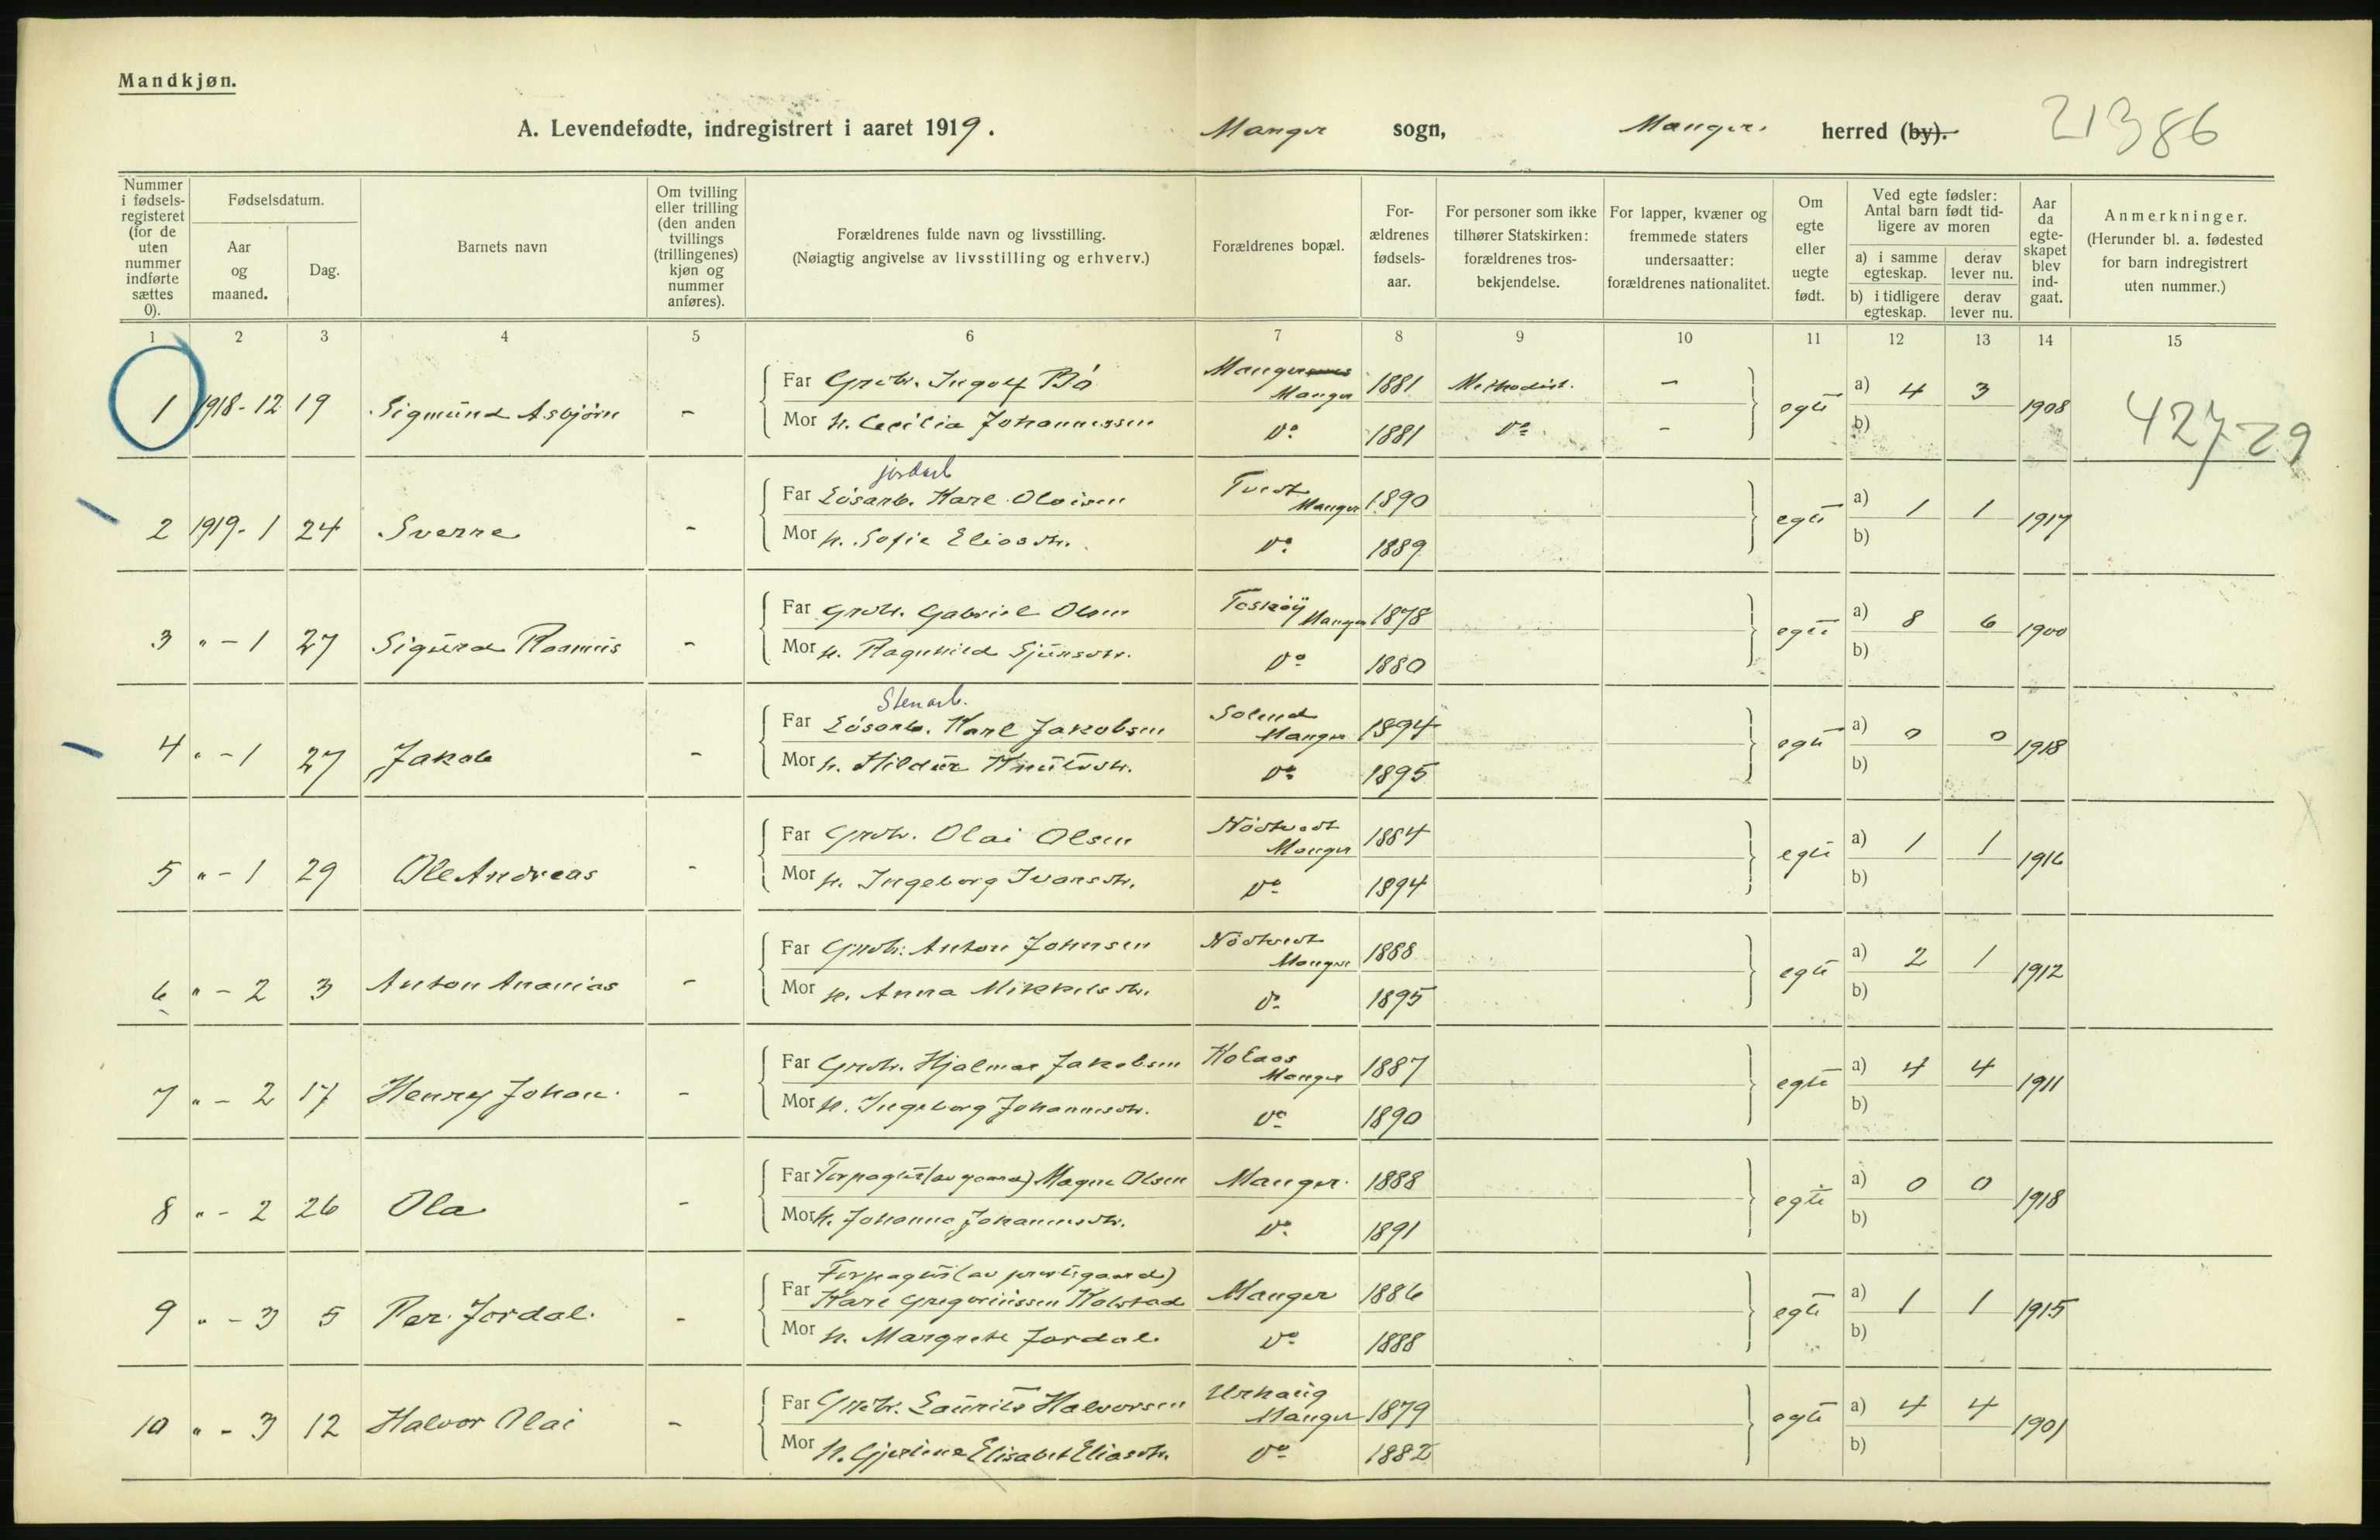 Mandkjøn.
A. Levendefødte, indregistrert i aaret 1919. Manger sogn, Manger herred (by). 21386
Nummer i fødsels-registeret (for de uten nummer indførte sættes 0).
Fødselsdatum.
Aar og maaned.
Dag.
Barnets navn
Om tvilling eller trilling (den anden tvillings (trillingenes) kjøn og nummer anføres).
Forældrenes fulde navn og livsstilling.
(Nøiagtig angivelse av livsstilling og erhverv.)
Forældrenes bopæl.
For-ældrenes fødsels-aar.
For personer som ikke tilhører Statskirken: forældrenes tros-bekjendelse.
For lapper, kvæner og fremmede staters undersaatter: forældrenes nationalitet.
Om egte eller uegte født.
Ved egte fødsler: Antal barn født tid-ligere av moren
a) i samme egteskap.
derav lever nu.
b) i tidligere egteskap.
derav lever nu.
Aar da egte-skapet blev ind-gaat.
Anmerkninger.
(Herunder bl. a. fødested for barn indregistrert uten nummer.)
1 2 3 4 5 6 7 8 9 10 11 12 13 14 15
1 1918-12 19 Sigmund Asbjørn - Far Grdbr. Ingolf Bö Manger 1881 Methodist. - egte a) 4 3 1908 42729
Mor h. Cecilia Johannessen Do 1881 Do - b)
jordarb
2 1919-1 24 Sverre - Far Lösarb. Karl Olaisen Tvedt Manger 1890 egte a) 1 1 1917
Mor h. Sofie Eliasdtr. Do 1889 b)
3 " - 1 27 Sigurd Rasmus - Far Grdbr. Gabriel Olsen Tosköy Manger 1878 egte a) 8 6 1900
Mor h. Ragnhild Sjursdtr. Do 1880 b)
Stenarb.
4 " - 1 27 Jakob - Far Lösarb. Karl Jakobsen Solend Manger 1894 egte a) 0 0 1918
Mor h. Hildur Knutsdtr. Do 1895 b)
5 " - 1 29 Ole Andreas - Far Grdbr. Olai Olsen Nödtvedt Manger 1884 egte a) 1 1 1916
Mor h. Ingeborg Ivarsdtr. Do 1894 b)
6 " - 2 3 Anton Ananias - Far Grdbr. Anton Johnsen Nödtvedt Manger 1888 egte a) 2 1 1912
Mor h. Anna Mikkelsdtr. Do 1895 b)
7 " - 2 17 Henry Johan - Far Grdbr. Hjalmar Jakobsen Kolaas Manger 1887 egte a) 4 4 1911
Mor h. Ingeborg Johannesdtr. Do 1890 b)
8 " - 2 26 Ola - Far Forpagter (av gaard) Magne Olsen Manger 1888 egte a) 0 0 1918
Mor h. Johanna Johannesdtr. Do 1891 b)
Forpagter (av prestegaard)
9 " - 3 5 Per Jordal - Far Karl Gregoriussen Kolstad Manger 1886 egte a) 1 1 1915
Mor h. Margrete Jordal Do 1888 b)
10 " - 3 12 Halvor Olai - Far Grdbr. Laurits Halvorsen Urhaug Manger 1879 egte a) 4 4 1901
Mor h. Gjertine Elisabet Eliasdtr. Do 1882 b)